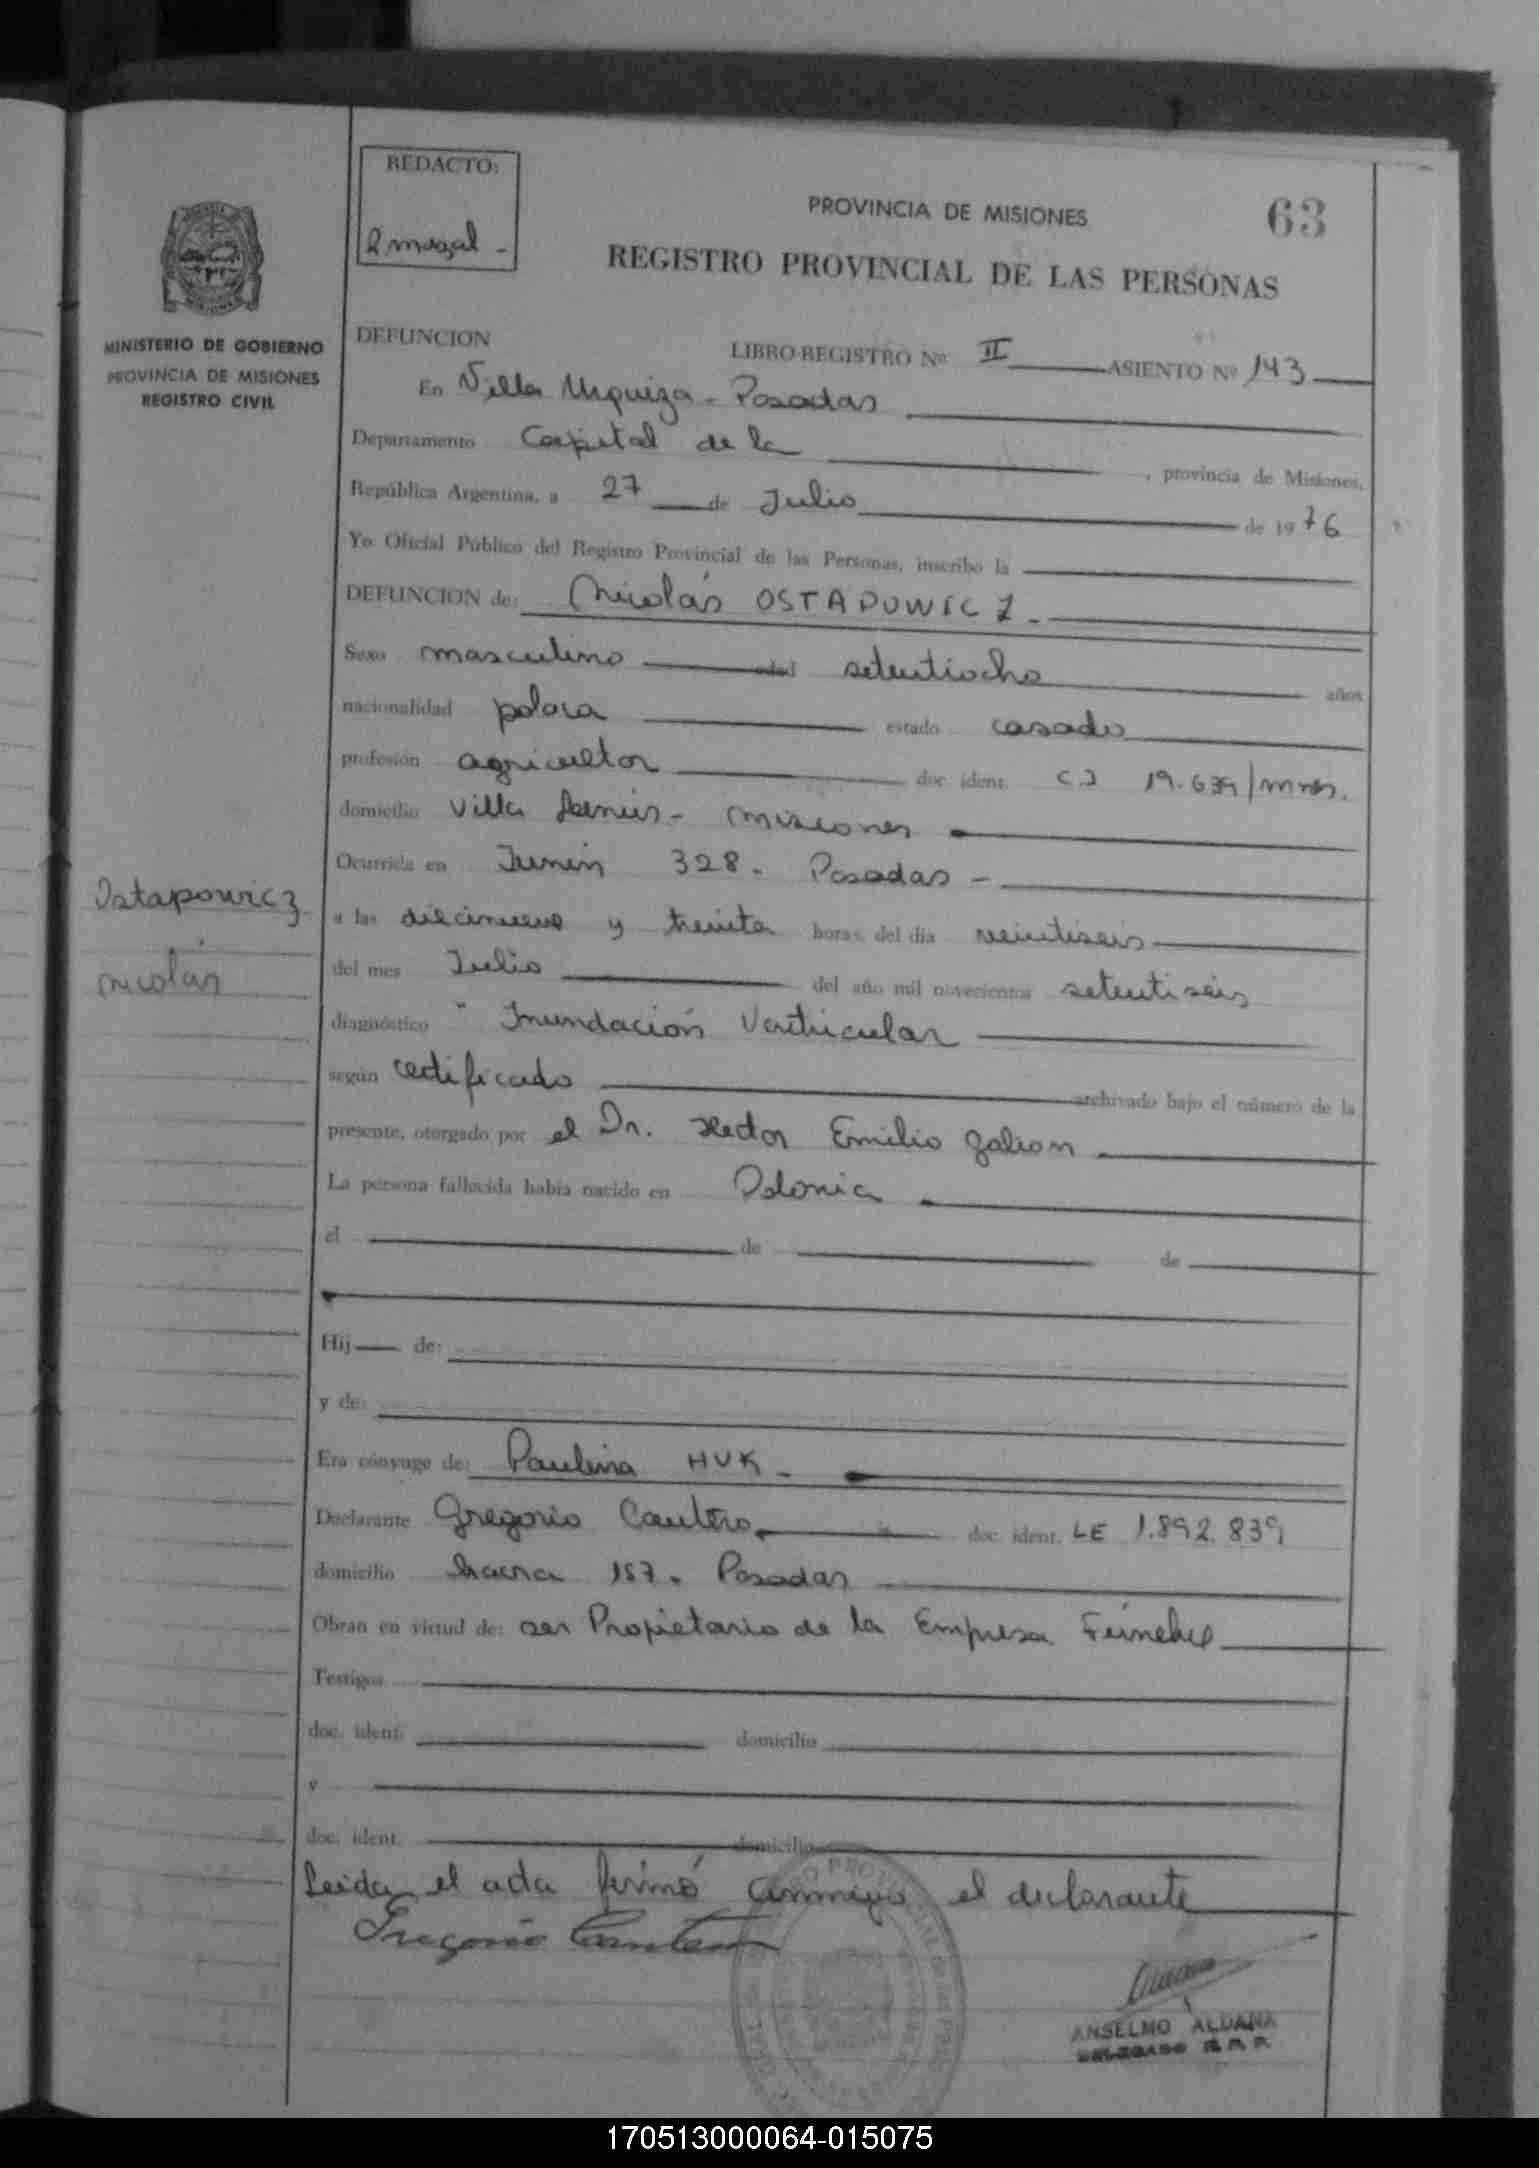 REDACTO:
PROVINCIA DE MISIONES
63
REGISTRO PROVINCIAL DE LAS PERSONAS
MINISTERIO DE GOBIERNO
PROVINCIA DE MISIONES
REGISTRO CIVIL
DEFUNCION
LIBRO-REGISTRO Nº II ASIENTO Nº 143
En Villa Urquiza - Posadas
Departamento Capital de la , provincia de Misiones,
República Argentina, a 27 de Julio de 1976
Yo Oficial Público del Registro Provincial de las Personas, inscribo la
DEFUNCION de: Nicolás OSTAPOWICZ.-
Sexo masculino edad setentiocho años
nacionalidad polaca estado casado
profesión agricultor doc. ident. C.I 19.639/mnes.
domicilio Villa Lanús - Misiones
Ocurrida en Junin 328. Posadas -
Ostapowicz
Nicolás
a las diecinueve y treinta horas, del día veintiseis
del mes Julio del año mil novecientos setentiséis
diagnóstico " Inundación Ventricular
según certificado archivado bajo el número de la
presente, otorgado por el Dr. Hector Emilio Galeon
La persona fallecida había nacido en Polonia
el de de
Hij de:
y de:
Era cónyuge de: Paulina HUK -
Declarante Gregorio Cantero doc. ident. LE 1.892.839
domicilio 157. Posadas
Obran en virtud de: ser Propietario de la Empresa Fúnebre
Testigos
doc. ident. domicilio
y
doc. ident. domicilio
Leida el acta firmó conmigo el declarante
Gregorio Cantero
ANSELMO ALDANA
DELEGADO R.P.P.
170513000064-015075